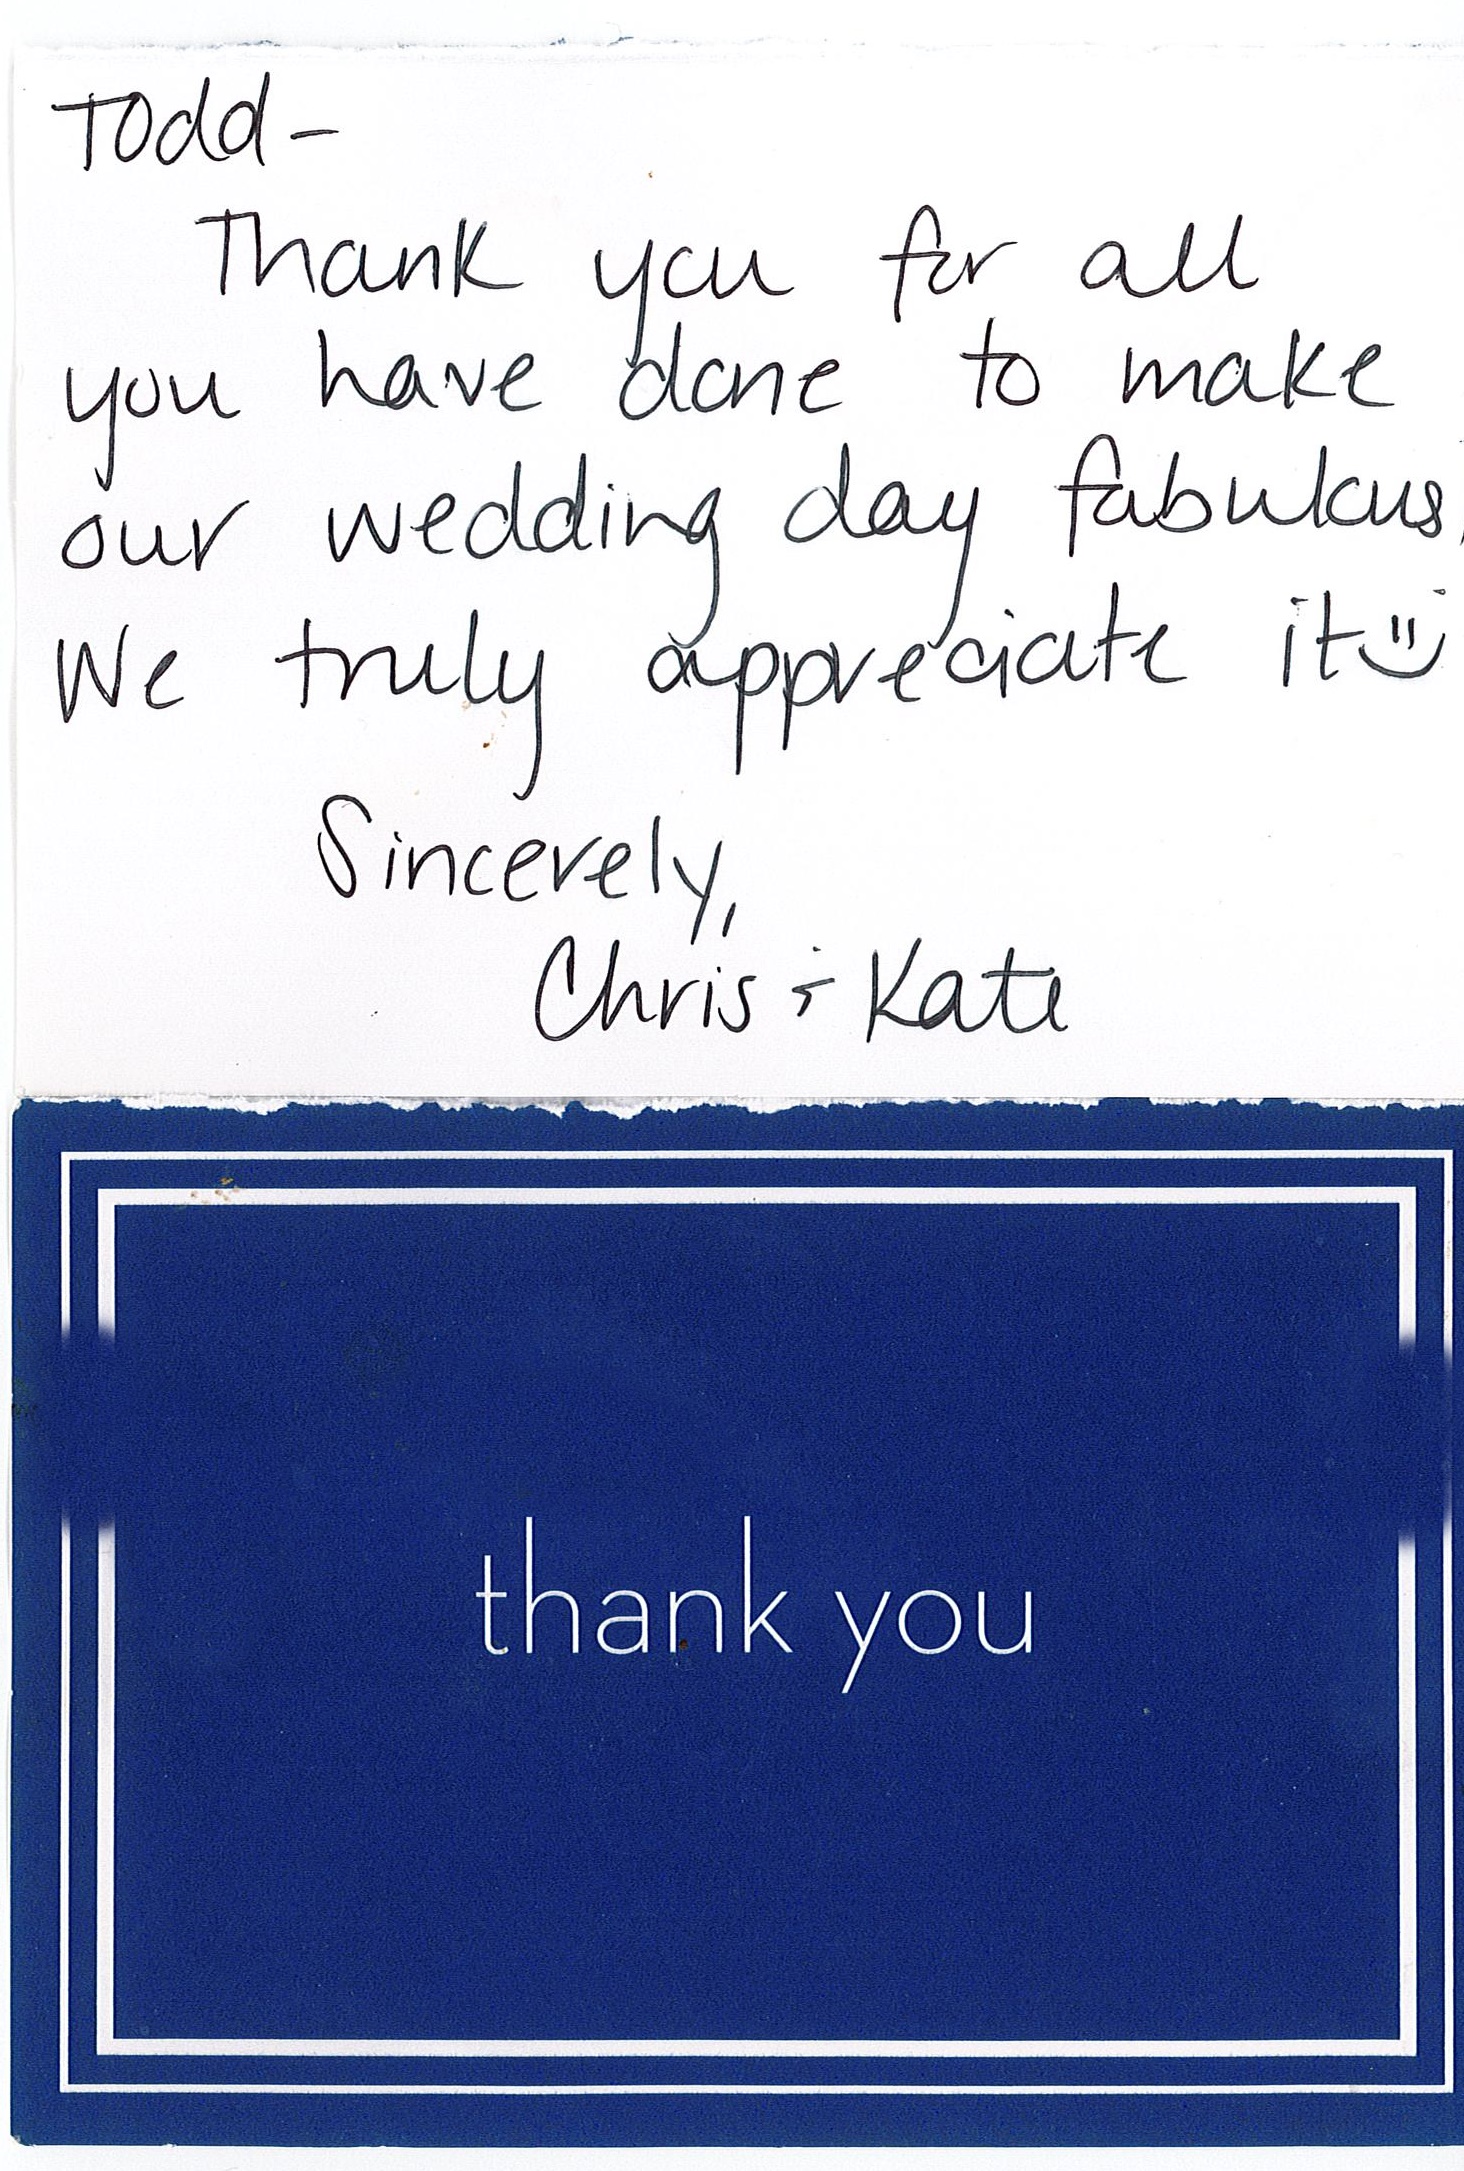 Todd-
Thank you for all
you have done to make
our wedding day fabulous.
We truly appreciate it
Sincerely,
Chris & Kate
thank you